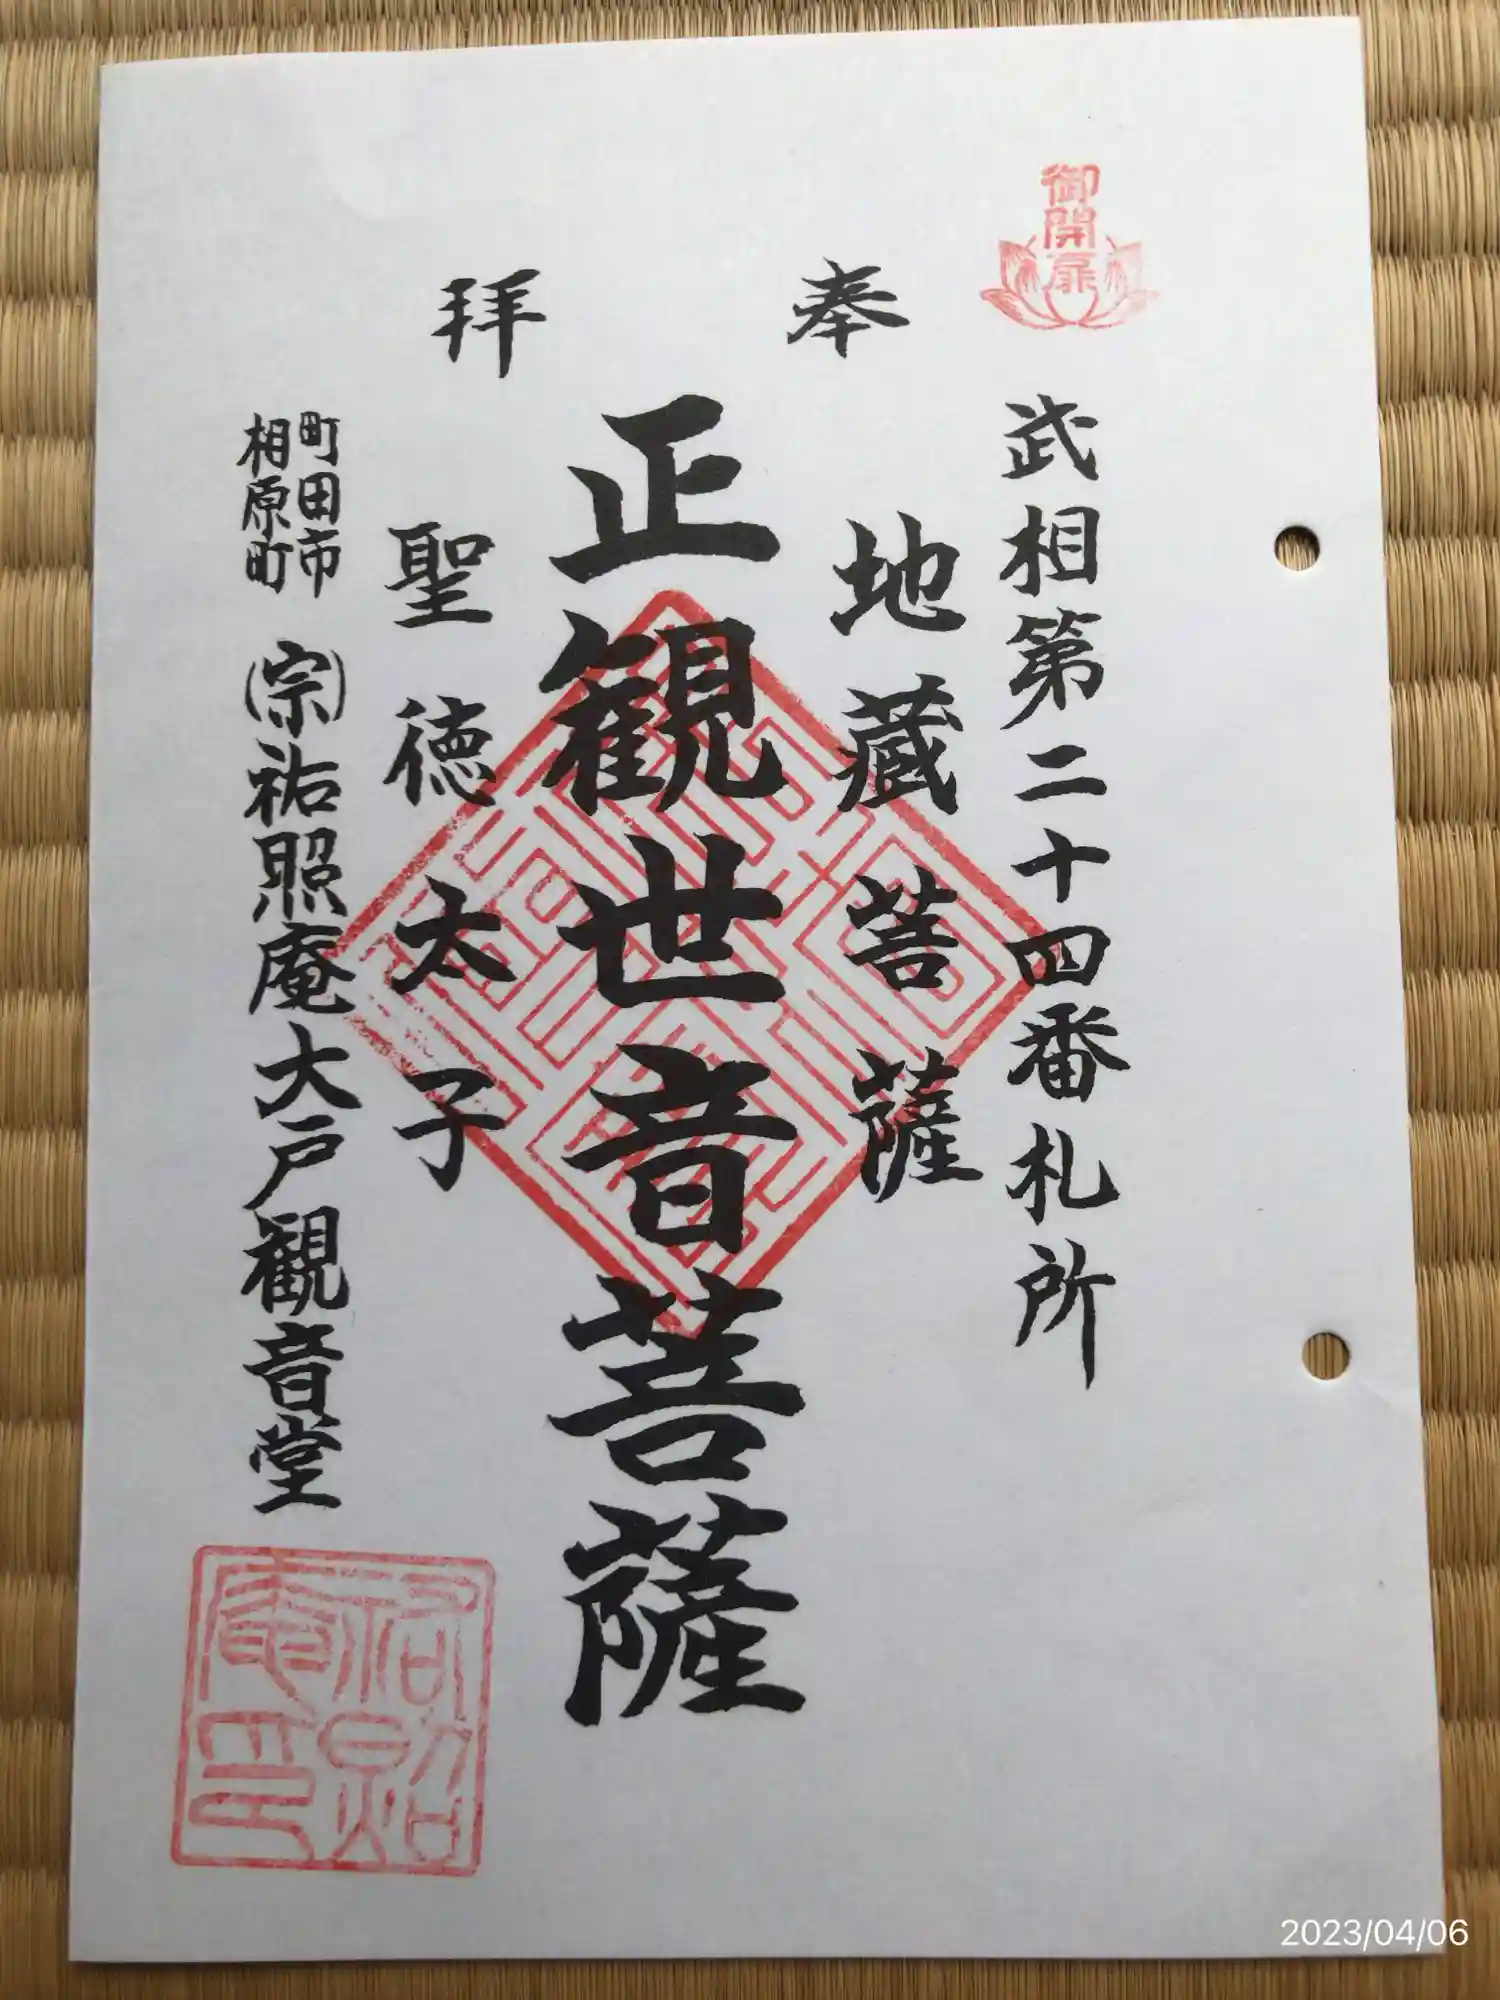 御開扉
武相第二十四番札所
奉
地蔵菩薩
正観世音菩薩
拝
聖徳太子
町田市
相原町
(宗)祐照庵大戸観音堂
祐照庵印
2023/04/06